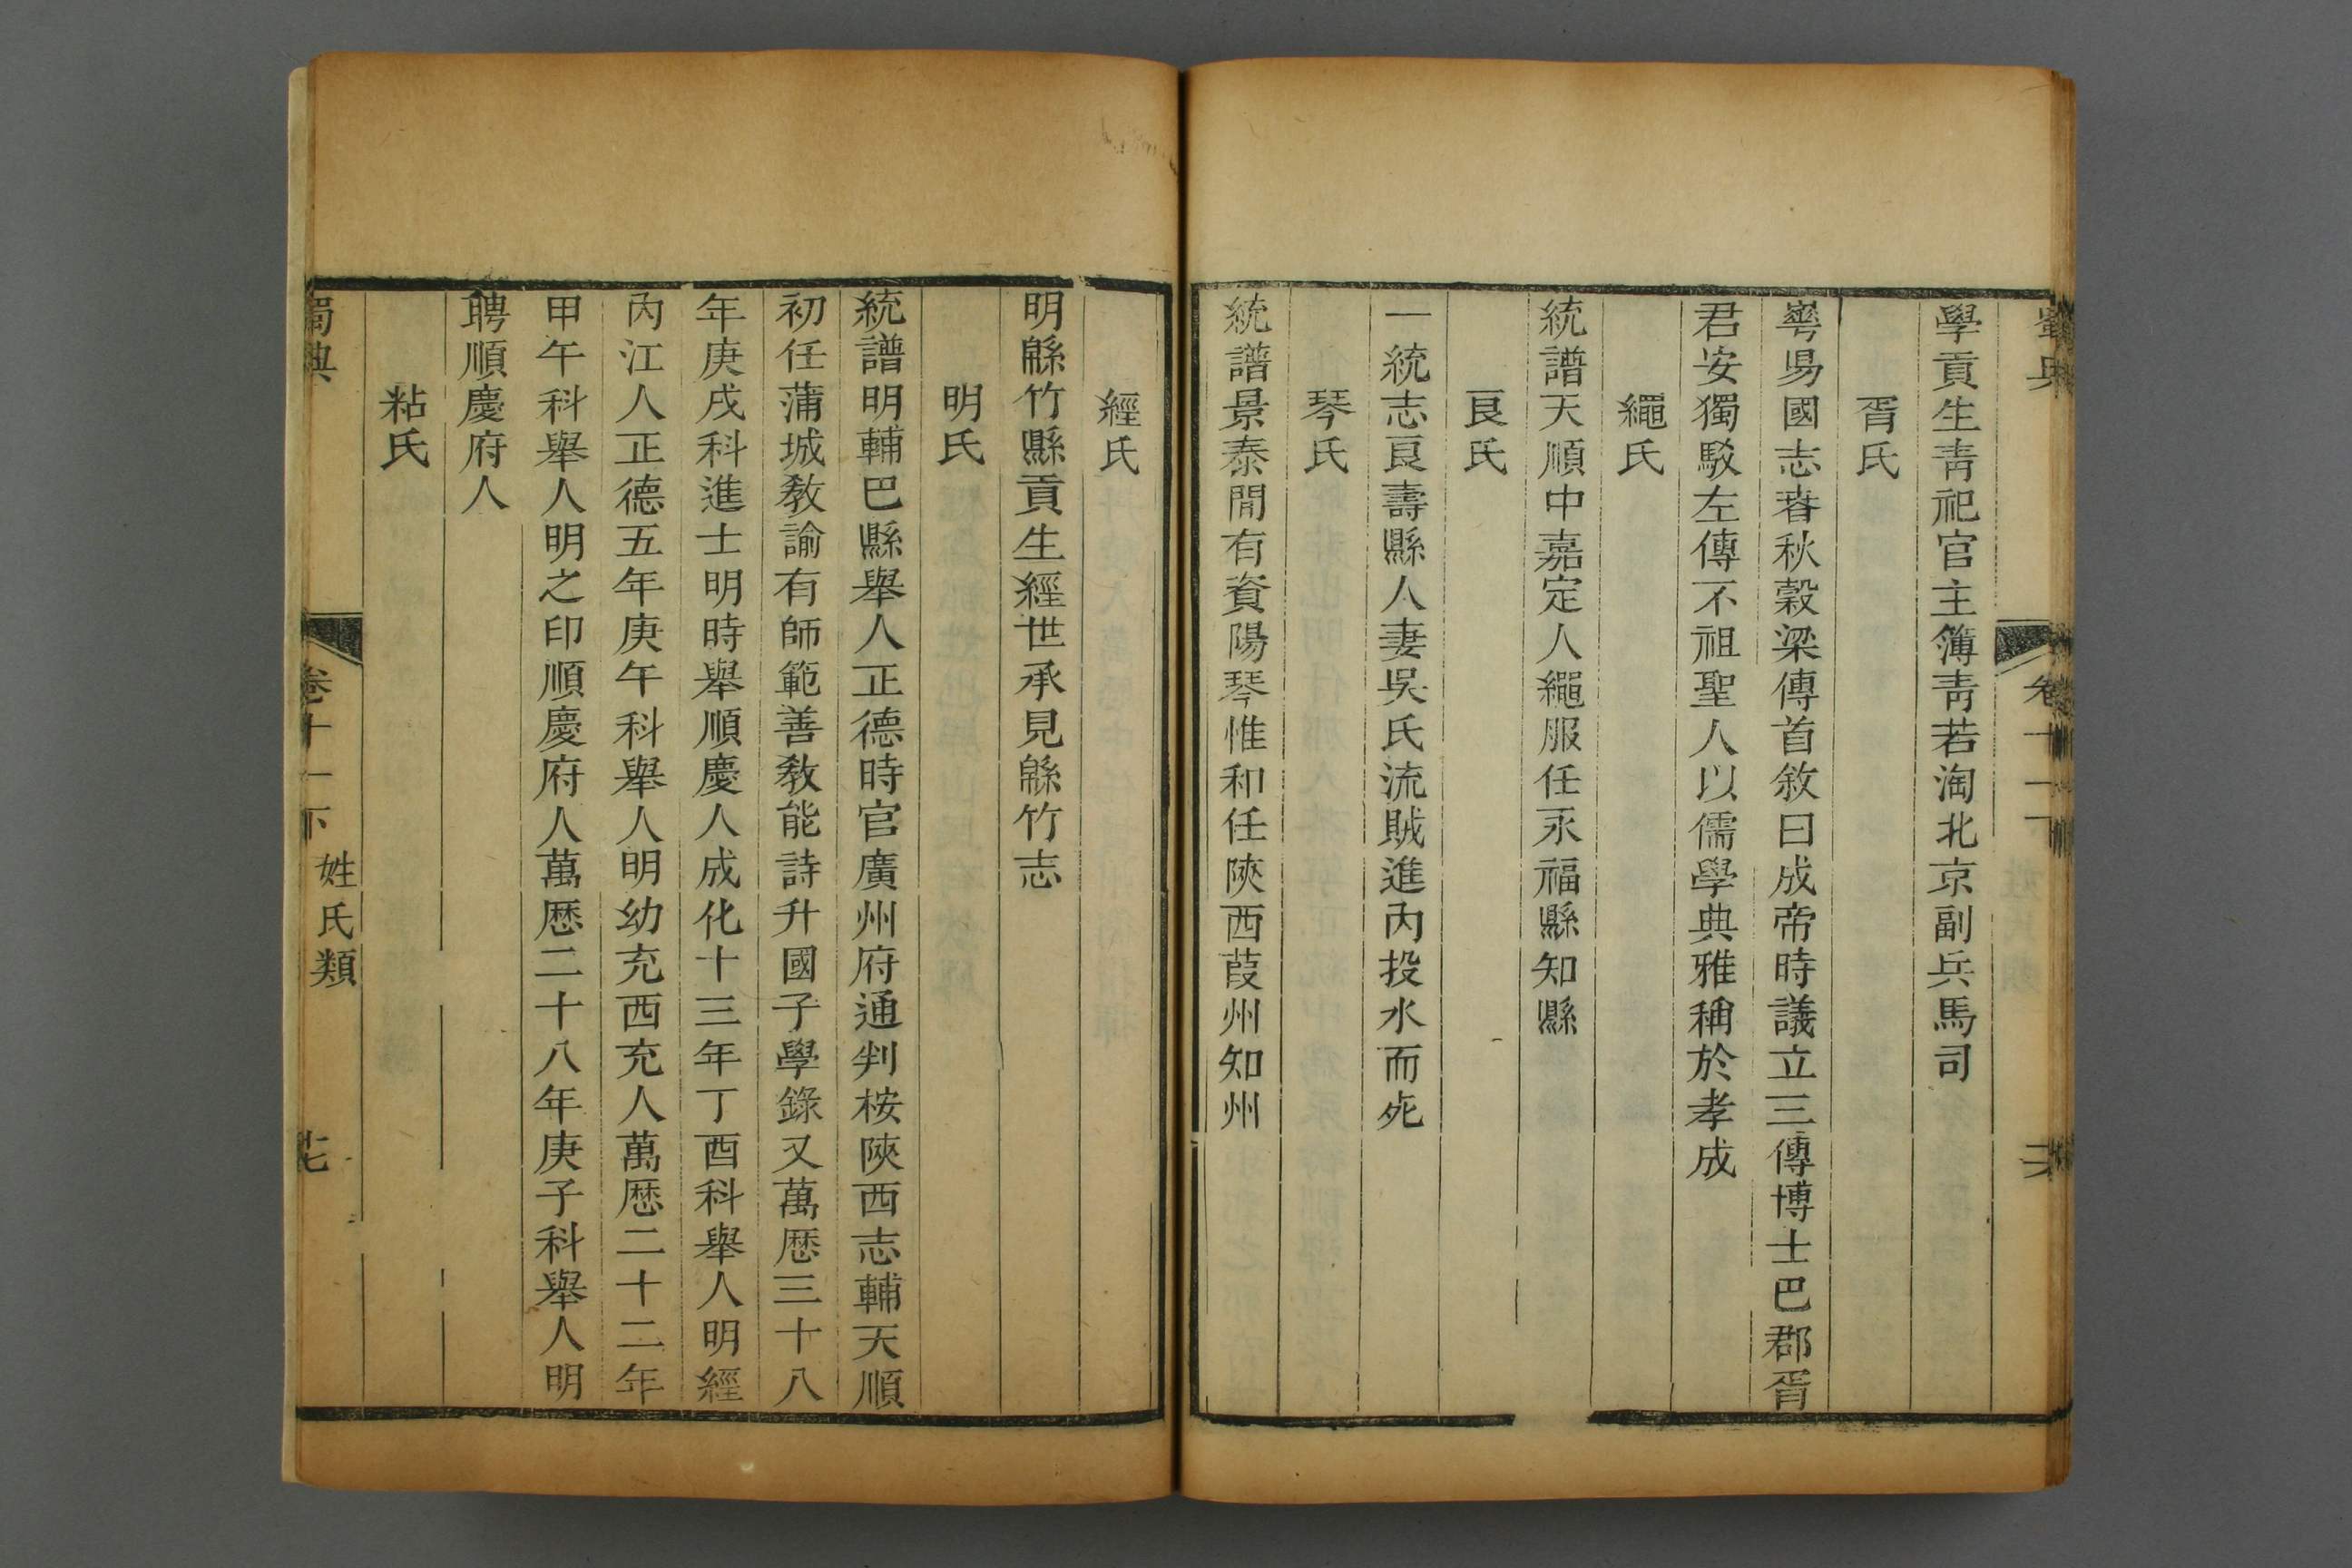 蜀典 卷十一下 姓氏類
學貢生靑祀官主簿靑若淘北京副兵馬司
胥氏
𠾑昜國志春秋穀梁傳首敘曰成帝時議立三傳博士巴郡胥
君安獨駁左傳不祖聖人以儒學典雅稱於孝成
繩氏
統譜天順中嘉定人繩服任永福縣知縣
艮氏
一統志艮壽縣人妻吳氏流賊進內投水而死
琴氏
統譜景泰閒有資陽琴惟和任陝西葭州知州
經氏
明緜竹縣貢生經世承見緜竹志
明氏
統譜明輔巴縣舉人正德時官廣州府通判桉陝西志輔天順
初任蒲城敎諭有師範善敎能詩升國子學錄又萬歷三十八
年庚戌科進士明時舉順慶人成化十三年丁酉科舉人明經
內江人正德五年庚午科舉人明幼充西充人萬歷二十二年
甲午科舉人明之印順慶府人萬歷二十八年庚子科舉人明
聘順慶府人
粘氏
蜀典 卷十一下 姓氏類 七